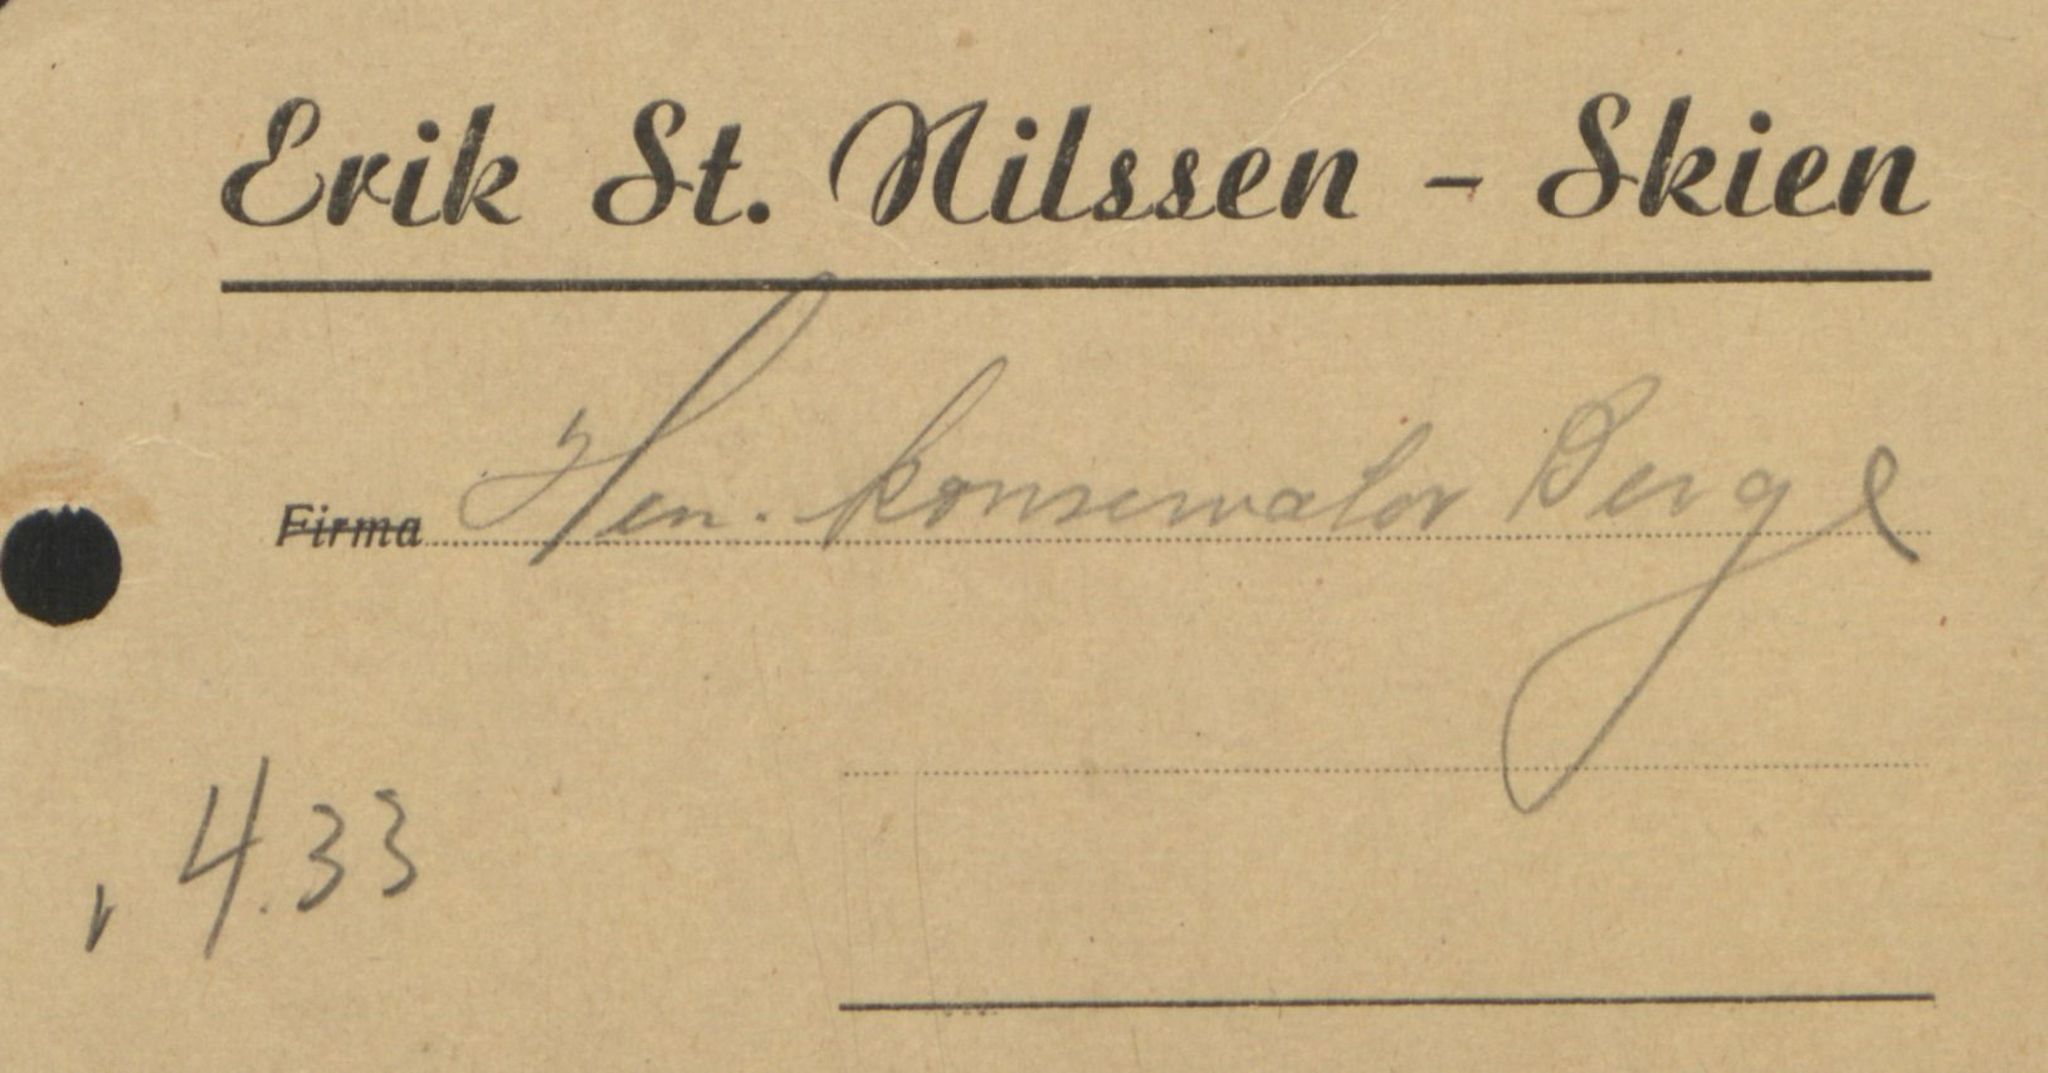 Erik St. Nilssen - Skien
Firma Hr. konservator Berge
4.33